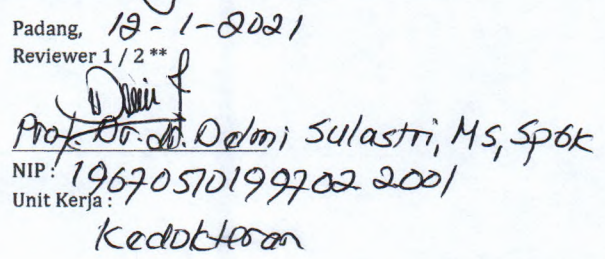 Padang, 12-1-2021
Reviewer 1 / 2 **
Prof. Dr. dr. Delmi Sulastri, MS, SpGK
NIP : 19670510199702 2001
Unit Kerja :
Kedokteran